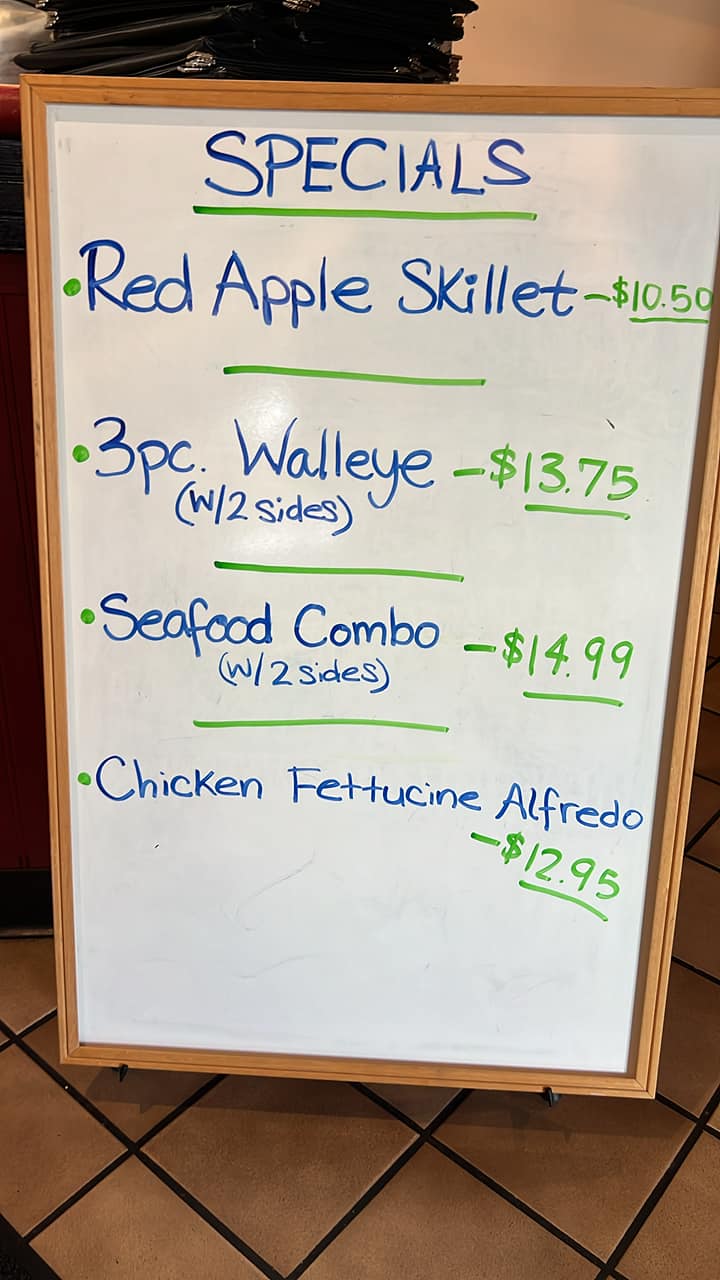 SPECIALS
•Red Apple Skillet -$10.50
•3pc. Walleye -$13.75
(w/2 sides)
•Seafood Combo -$14.99
(w/2 sides)
•Chicken Fettucine Alfredo
-$12.95